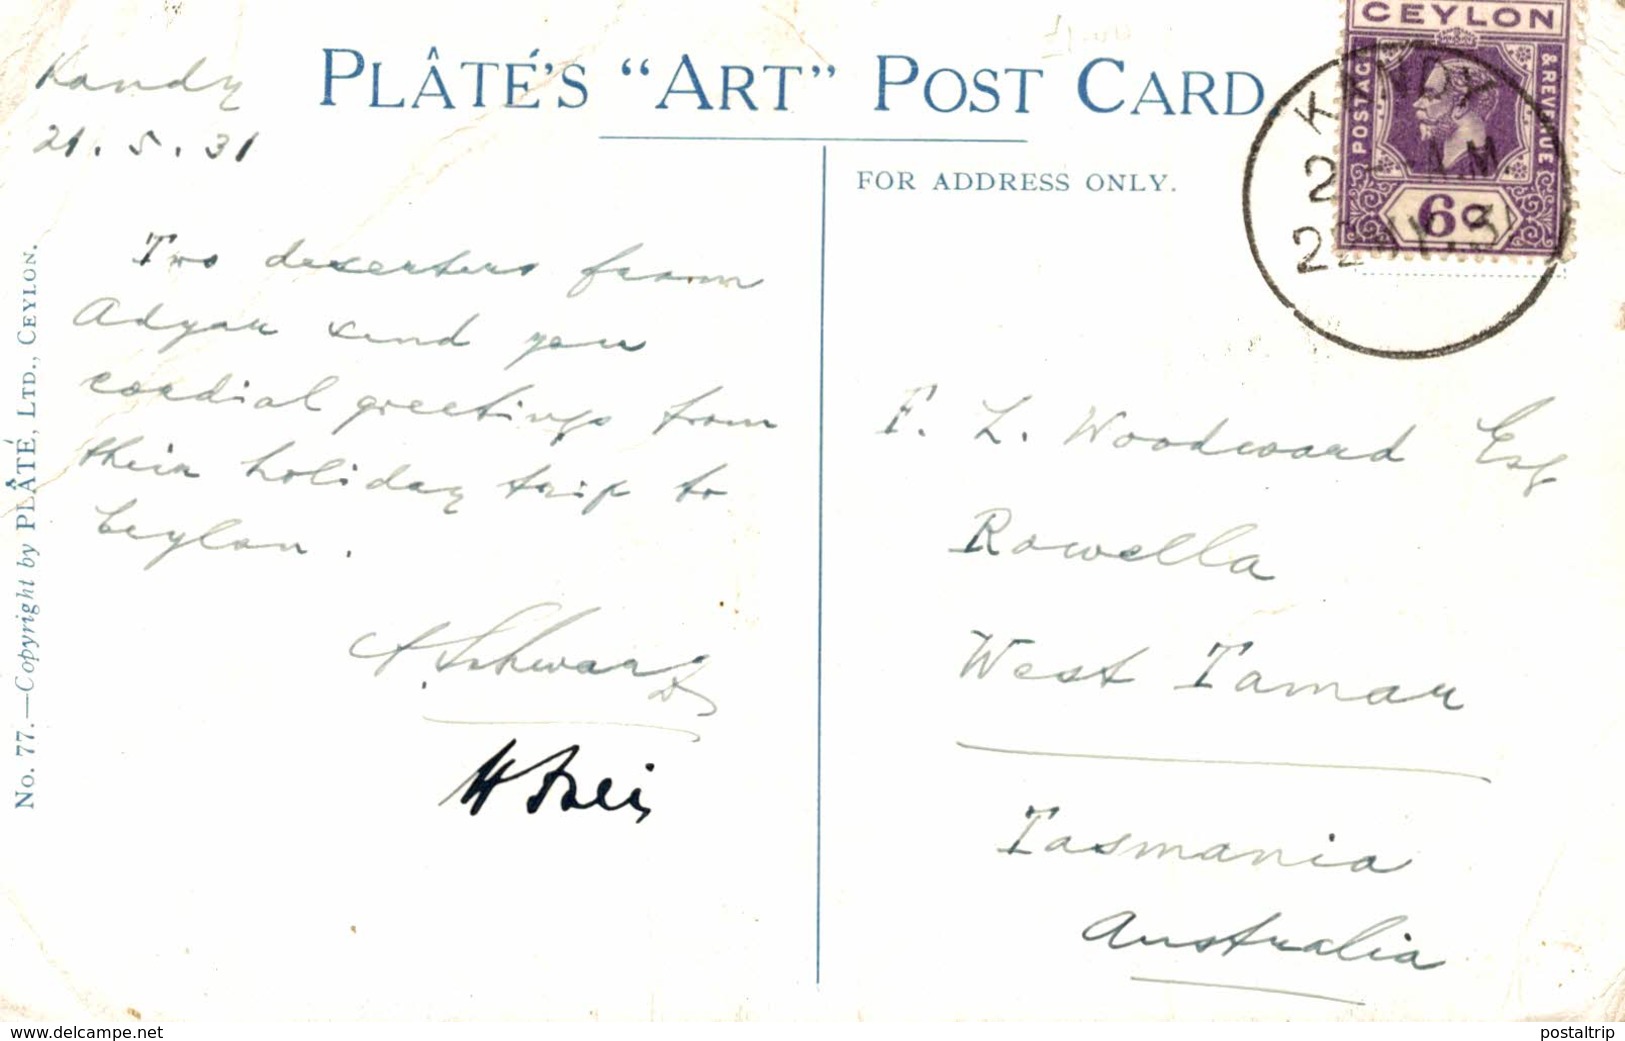 PLÂTÉ'S “ART” POST CARD
FOR ADDRESS ONLY.
Kandy
21.5.31
Two dexerters from
Adyar send you
cordial greetings from
their holiday trip to
Ceylon.
A. Schwarz
H Frei
No. 77.—Copyright by PLÂTÉ, LTD., CEYLON.
CEYLON
POSTAGE
& REVENUE
6c
KANDY
A.M.
22 MY. 31
F. L. Woodward Esq
Rowella
West Tamar
Tasmania
Australia
www.delcampe.net
postaltrip